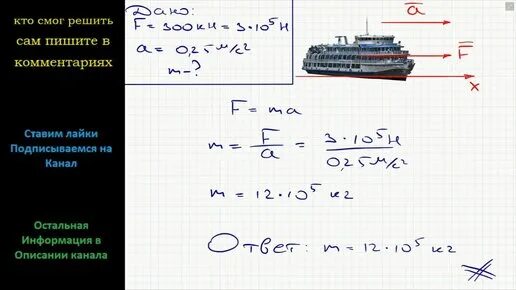 кто смог решить
сам пишите в
комментариях
Ставим лайки
Подписываемся на
Канал
Остальная
Информация в
Описании канала
Дано:
F = 300 кН = 3·10⁵ Н
a = 0,25 м/с²
m - ?
a
F
x
F = ma
m = F/a = 3·10⁵ Н / 0,25 м/с²
m = 12·10⁵ кг
Ответ: m = 12·10⁵ кг